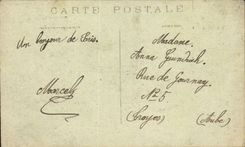 CARTE POSTALE
Un bonjour de Paris.
Marcel
Madame
Anna
Rue de Gournay
N° 5
(Troyes) (Aube)